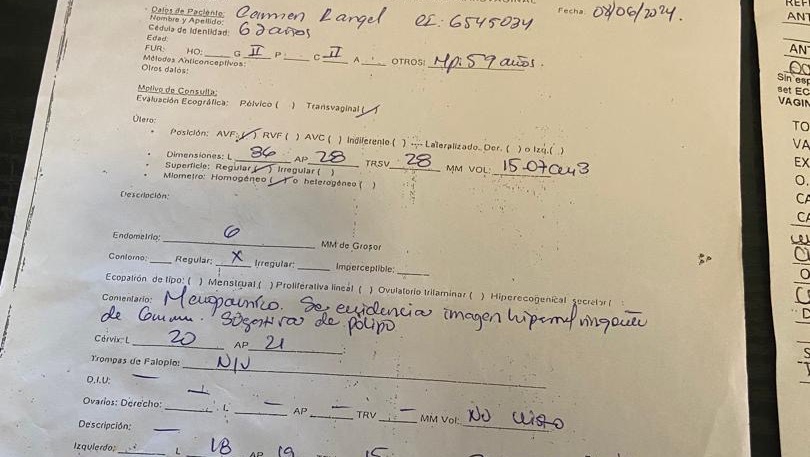 Datos de Paciente:
Nombre y Apellido: Carmen Rangel CI: 6545034
Fecha: 08/06/2024.
Cédula de Identidad: 62 años
Edad:
FUR: HO: G II P C II A OTROS: Mp: 59 años.
Métodos Anticonceptivos:
Otros datos:
Motivo de Consulta:
Evaluación Ecográfica: Pélvico ( ) Transvaginal (✓)
Útero:
• Posición: AVF (✓) RVF ( ) AVC ( ) Indiferente ( ) Lateralizado. Der. ( ) o Izq. ( )
• Dimensiones: L 36 AP 28 TRSV 28 MM VOL: 15.07cm3
• Superficie: Regular (✓) Irregular ( )
• Miometro: Homogéneo (✓) o heterogéneo ( )
Descripción:
Endometrio: 6 MM de Grosor
Contorno: Regular: X Irregular: Imperceptible:
Ecopatrón de tipo: ( ) Menstrual ( ) Proliferativa lineal ( ) Ovulatorio trilaminar ( ) Hiperecogenical secretor (
Comentario: Menopausico. Se evidencia imagen
de 6mm. Sugestiva de pólipo
Cérvix: L 20 AP 21
Trompas de Falopio: N/V
D.I.U: —
Ovarios: Derecho: L — AP — TRV — MM Vol: No visto
Descripción: —
Izquierdo: L 18 AP 19 15
REFE
ANT
ANT
Sin esp
set EC
VAGIN
TO
VA
EX
O.
CA
CA